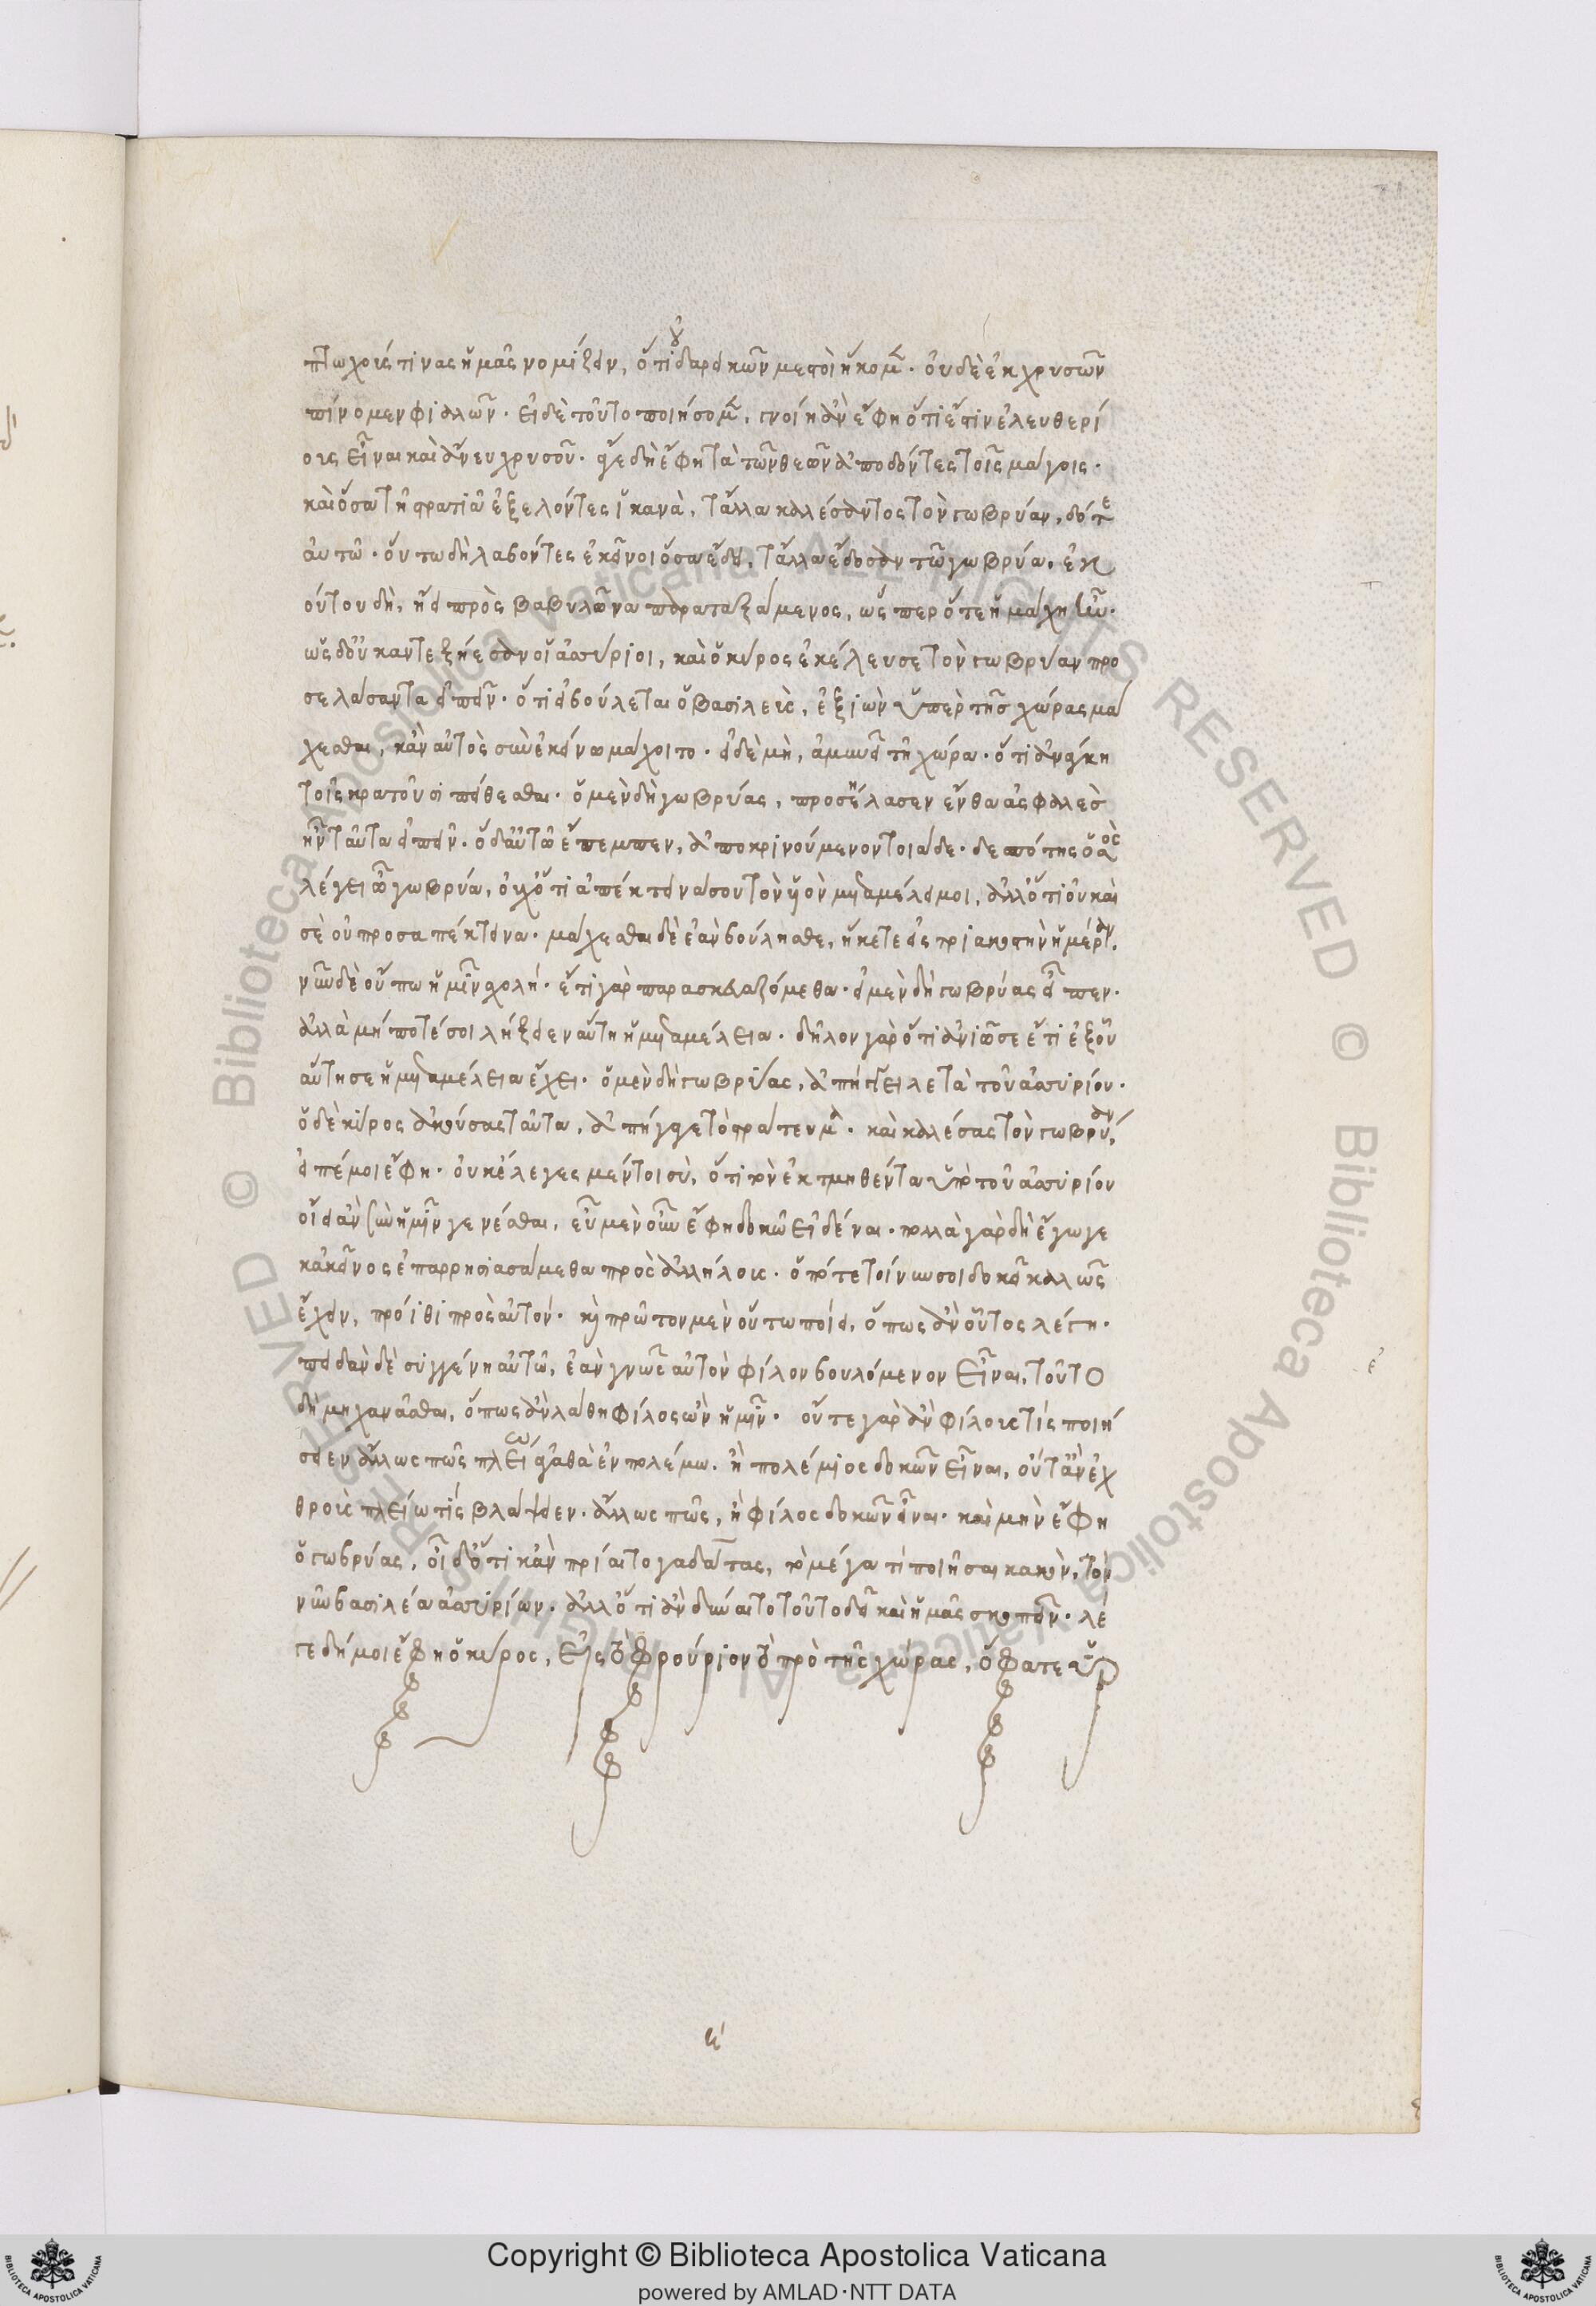 πτωχούς τινας ἡμᾶς νομίζειν, ὅτι οὐ δαρεικῶν μεστοὶ ἥκομεν. οὐδὲ ἐκ χρυσῶν
πίνομεν φιαλῶν. εἰ δὲ τοῦτο ποιήσομεν, γνοίη ἂν ἔφη ὅτι ἔστιν ἐλευθερί
οις εἶναι καὶ ἄνευ χρυσοῦ. ἔφη τὰ τῶν θεῶν ἀποδόντες τοῖς μάγοις.
καὶ ὅσα τῆ στρατιᾶ ἐξελόντες ἱκανὰ, τἄλλα καλέσαντες τὸν γωβρύαν, δότε
αὐτῶ. οὕτω δὴ λαβόντες ἐκεῖνοι ὅσα ἔδει, τἄλλα ἔδοσαν τῶ γωβρύα. ἐκ
τούτου δὴ, ἤει πρὸς βαβυλῶνα παραταξάμενος, ὥσπερ ὅτε ἡ μάχη ἦν.
ὡς δ' οὐκ ἀντεξήεσαν οἱ ἀσσύριοι, καὶ ὁ κύρος ἐκέλευσε τὸν γωβρύαν προ
σελάσαντα εἰπεῖν. ὅτι εἰ βούλεται ὁ βασιλεὺς, ἐξιὼν ὑπὲρ τῆς χώρας μά
χεσθαι, κἂν αὐτὸς σὺν ἐκείνω μάχοιτο. εἰ δὲ μὴ, ἀμυνεῖ τῆ χώρα. ὅτι ἀνάγκη
τοῖς κρατοῦσι πείθεσθαι. ὁ μὲν δὴ γωβρύας, προσήλασεν ἔνθα ἀσφαλὲς
ἦν ταῦτα εἰπεῖν. ὁ δ' αὐτῶ ἔπεμπεν, ἀποκρινούμενον τοιάδε. δεσπότης ὁ σὸς
λέγει ὦ γωβρύα, οὐχ ὅτι ἀπέκτεινά σου τὸν υἱὸν μεταμέλει μοι, ἀλλ' ὅτι οὐ καὶ
σὲ οὐ προσαπέκτεινα. μάχεσθαι δὲ ἐὰν βούλησθε, ἥκετε εἰς τριακοστὴν ἡμέραν.
νῦν δὲ οὔπω ἡμῖν σχολή. ἔτι γὰρ παρασκευαζόμεθα. ὁ μὲν δὴ γωβρύας εἶπεν.
ἀλλὰ μήποτέ σοι λήξειεν αὕτη ἡ μεταμέλεια. δῆλον γὰρ ὅτι ἀνιῶ σε ἔτι ἐξ οὗ
αὕτη σε ἡ μεταμέλεια ἔχει. ὁ μὲν δὴ γωβρύας, ἀπήγγειλε τὰ τοῦ ἀσσυρίου.
ὁ δὲ κύρος ἀκούσας ταῦτα, ἀπήγαγε τὸ στράτευμα. καὶ καλέσας τὸν γωβρύαν,
εἰπέ μοι ἔφη. οὐκ ἔλεγες μέντοι σὺ, ὅτι τὸν ἐκτμηθέντα ὑπὸ τοῦ ἀσσυρίου
οἴει ἂν σὺν ἡμῖν γενέσθαι, εὖ μὲν οὖν ἔφη δοκῶ εἰδέναι. πολλὰ γὰρ δὴ ἔγωγε
κἀκεῖνος ἐπαρρησιασάμεθα πρὸς ἀλλήλους. ὁπότε τοίνυν σοι δοκεῖ καλῶς
ἔχειν, πρόσιθι πρὸς αὐτόν. καὶ πρῶτον μὲν οὕτω ποίει, ὅπως ἂν οὗτος λέγη.
ἐπειδὰν δὲ συγγένη αὐτῶ, ἐὰν γνῶς αὐτὸν φίλον βουλόμενον εἶναι, τοῦτο
δὴ μηχανᾶσθαι, ὅπως ἂν λάθη φίλος ὢν ἡμῖν. οὔτε γὰρ ἂν φίλους τίς ποιή
σειεν ἄλλως πῶς πλείω ἀγαθὰ ἐν πολέμω. ἢ πολέμιος δοκῶν εἶναι, οὔτ' ἂν ἐχ
θροὺς πλείω τίς βλάψειεν. ἄλλως πῶς, ἢ φίλος δοκῶν εἶναι. καὶ μὴν ἔφη
ὁ γωβρύας, οἶδ' ὅτι κἂν πρίαιτο γαδάτας, τὸ μέγα τί ποιῆσαι κακὸν, τὸν
νῦν βασιλέα ἀσσυρίων. ἀλλ' ὅτι ἂν δύναιτο τοῦτο δεῖ καὶ ἡμᾶς σκοπεῖν. λέ
γε δή μοι ἔφη ὁ κύρος, εἰς τὸ φρούριον τὸ πρὸ τῆς χώρας, ὅ φατε ὑπ